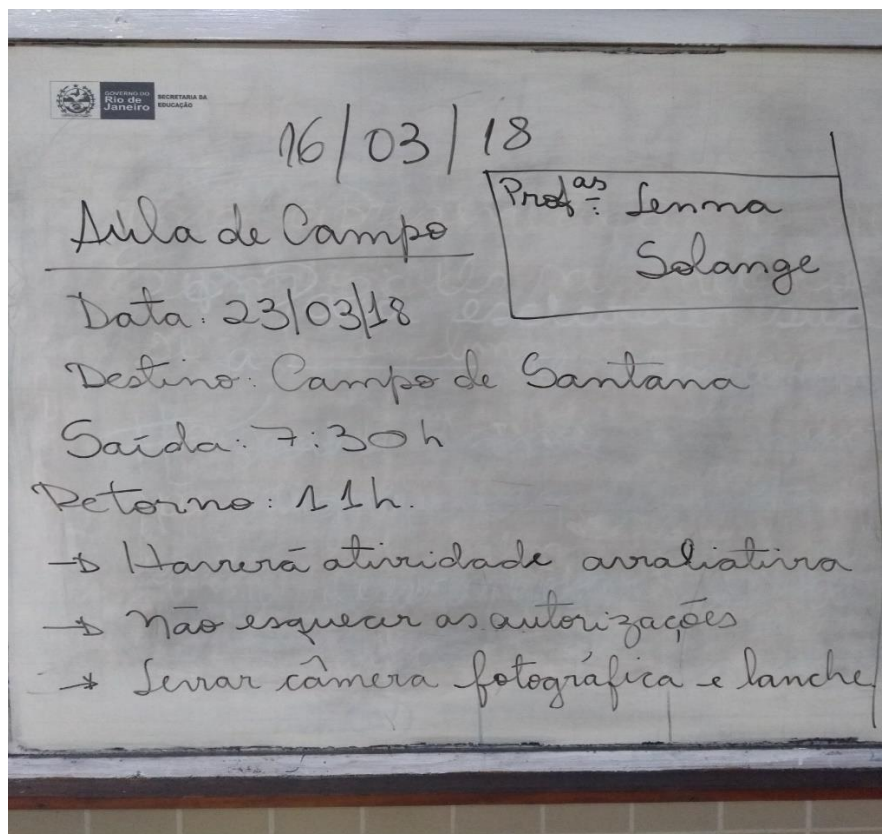 GOVERNO DO
Rio de
Janeiro
SECRETARIA DA
EDUCAÇÃO
16/03/18
Prof.as: Lenna
Solange
Aula de Campo
Data: 23/03/18
Destino: Campo de Santana
Saída: 7:30h
Retorno: 11h.
→ Haverá atividade avaliativa
→ Não esquecer as autorizações
→ Levar câmera fotográfica e lanche